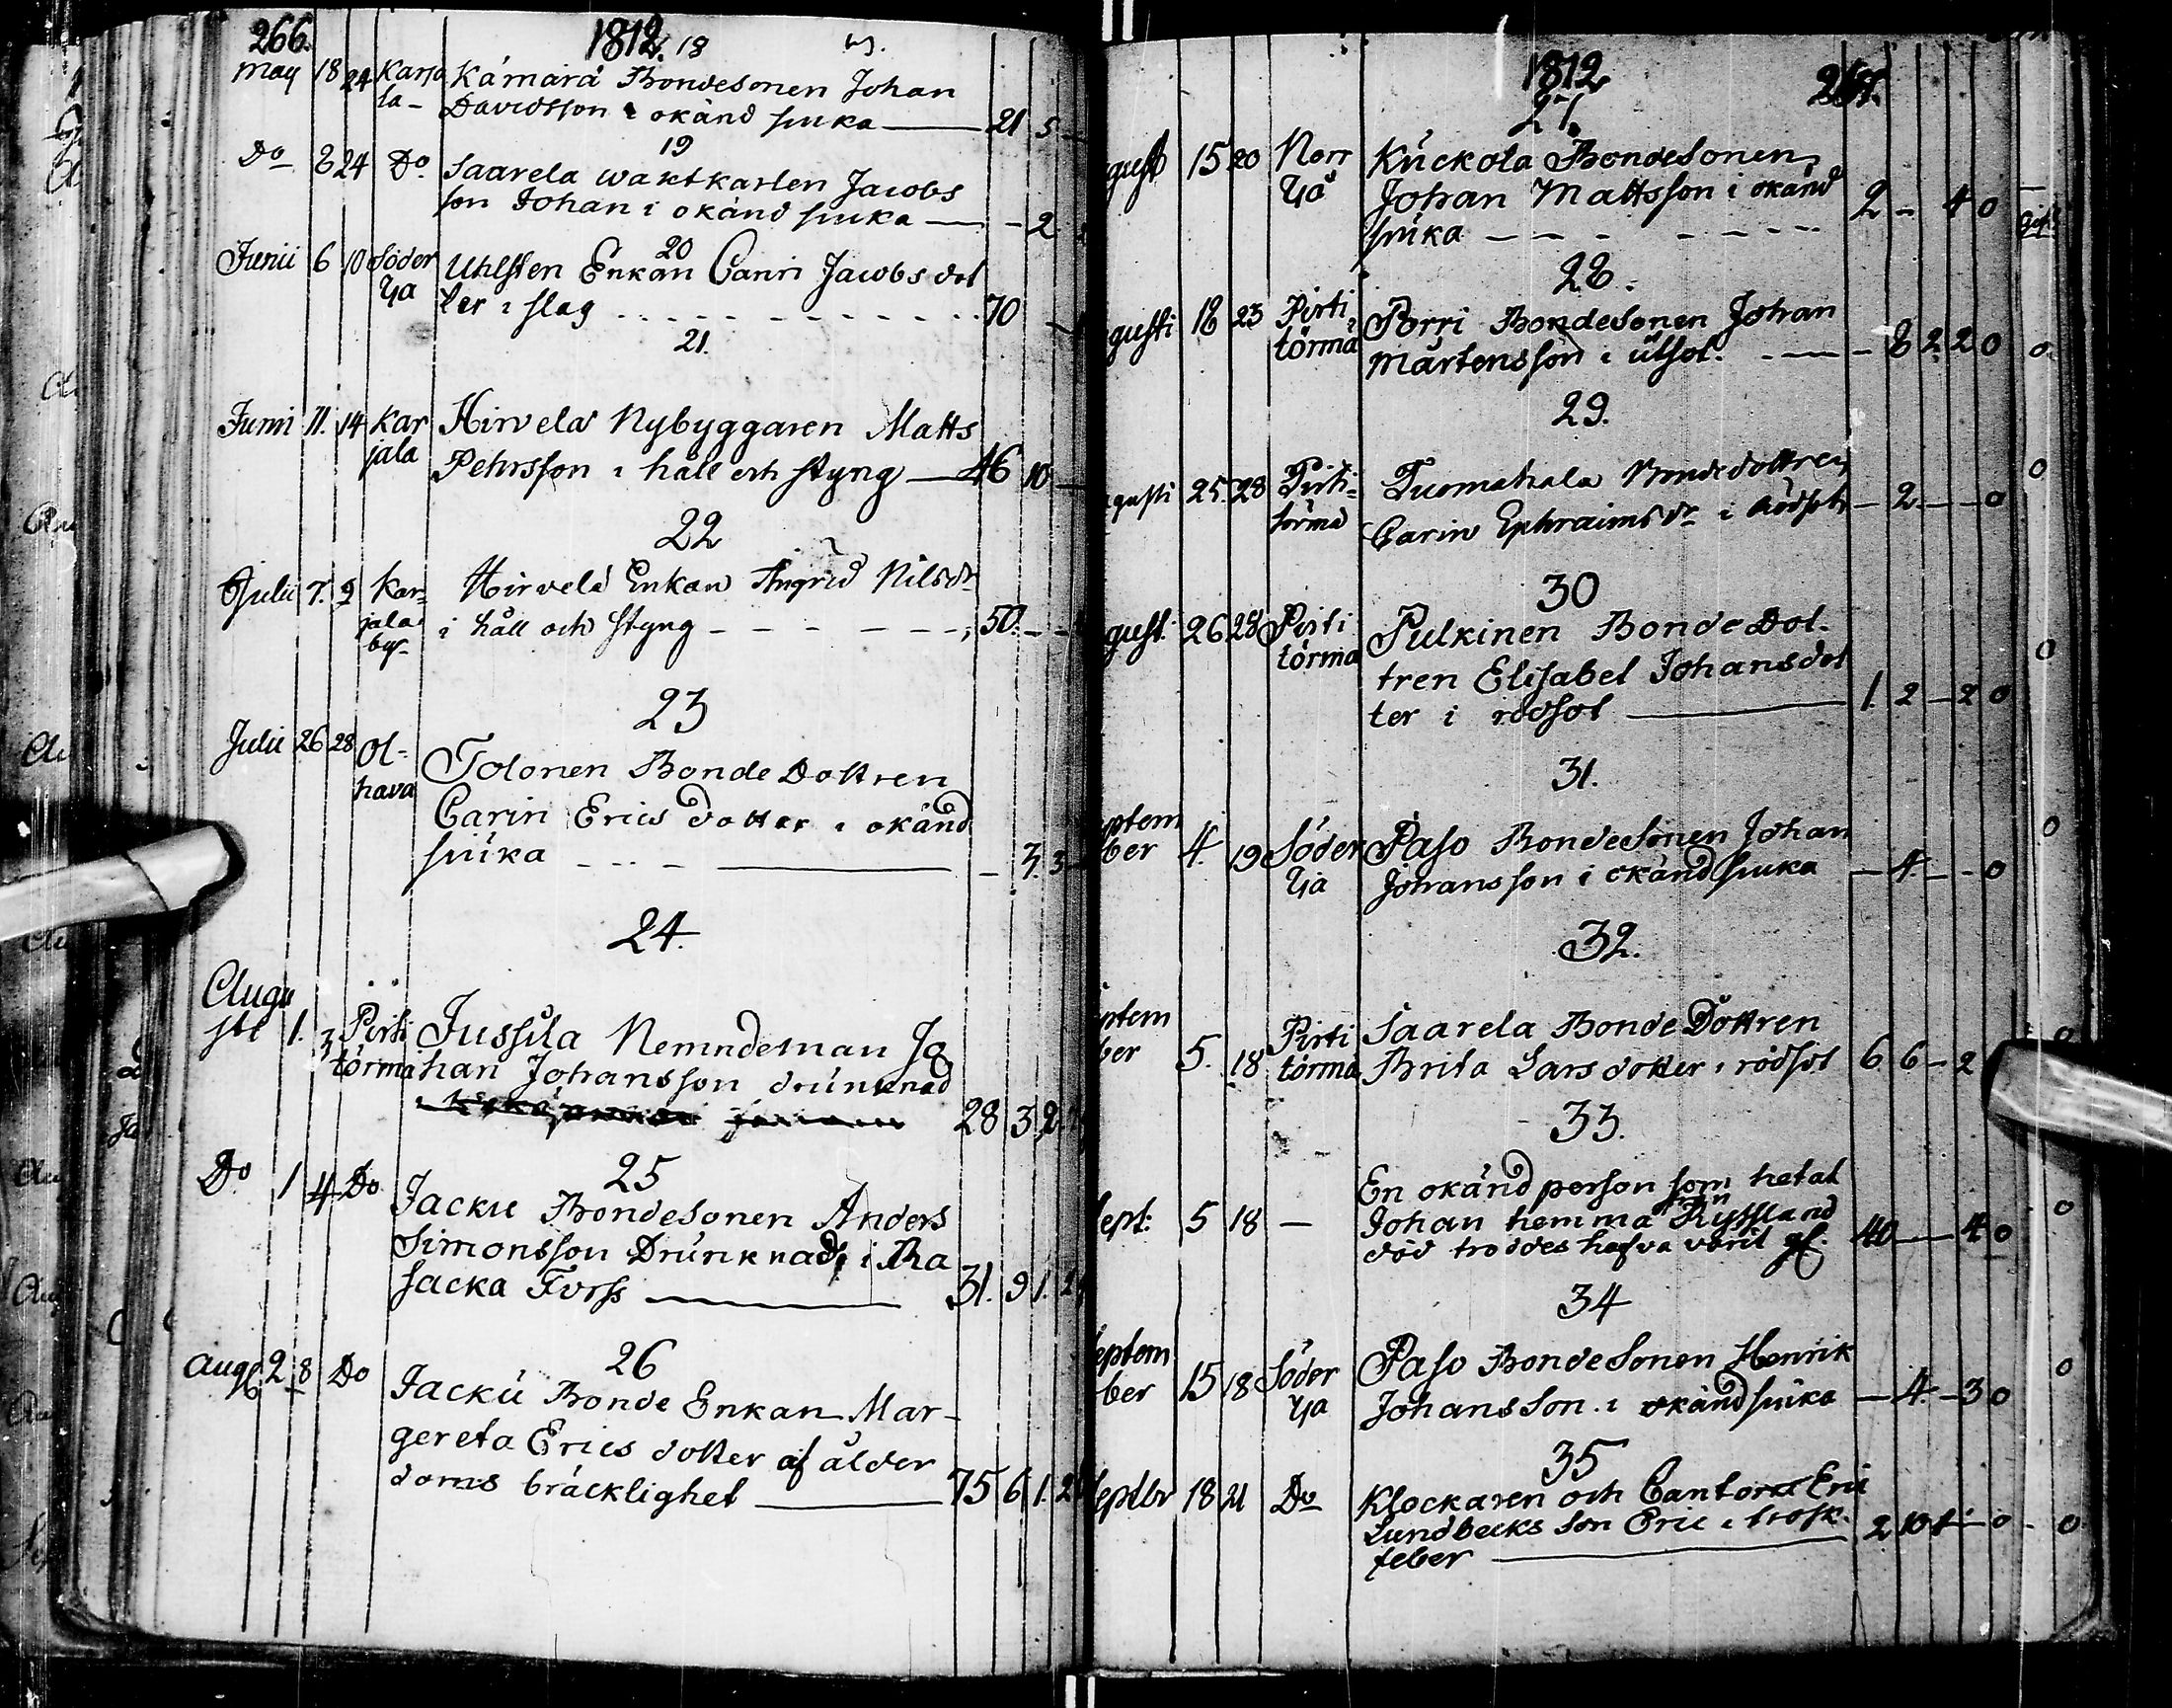 266.
1812. 18
May 18 24 Karja Kämärä Bondesonen Johan
la- Davidsson i okänd siuka — 21 5 —
19
Do 8 24 Do Saarela waktkarlen Jacobs
son Johan i okänd siuka — - 2
20
Junii 6 10 Söder Uhlsten Enkan Carin Jacobs dot
Ija ter i slag - - - - 70 -
21.
Junii 11. 14 Kar Hirvelä Nybyggaren Matts
jala Pehrsson i håll och styng — 46 10 —
22
Julii 7. 9 Kar= Hirvelä Enkan Ingrid Nilsdr
jala i håll och styng - - - - 50. - -
by-
23
Julii 26 28 Ol= Tolonen Bonde Dottren
hava Carin Erics dotter i okänd
siuka - - - — - 3. 3
24.
Augu
sti 1. 3 Pirti Jussila Nemndeman Jo
törmä han Johansson drunknad
28 3 2
25
Do 1 4 Do Jacku Bondesonen Anders
Simonsson Drunknade i Ra
sacka Forss — 31. 9 1. 2
26
Aug. 2 8 Do Jacku Bonde Enkan Mar-
gereta Erics dotter af ålder
doms bräcklighet — 75 6 1. 2
1812 267.
27.
gusti 15 20 Norr Kuckola Bondesonen
Ijå Johan Mattsson i okänd 2 - 4 0
siuka - - - - - -
28.
gusti 18 23 Pirti Porri Bondesonen Johan
törmä Mårtensson i utsot. - - - 8 2 2 0 0
29.
gusti 25. 28 Pirti= Tuomahala Bondedottren 0
törmä Carin Ephraims dr i rödsot - 2 - - 0
30
gusti 26 28 Pirti Pulkinen Bonde Dot-
törmä tren Elisabet Johansdot 0
ter i rödsot — 1. 2 - 2 0
31.
ptem 0
ber 4. 19 Söder Paso Bondesonen Johan
Ija Johansson i okänd siuka - 4 - - 0
32.
ptem Pirti Saarela Bonde Dottren 0
ber 5. 18 törmä Brita Lars dotter i rödsot 6 6 - 2
33.
En okänd person som hetat 0
Sept. 5 18 — Johan hemma från Ryssland
död troddes hafva varit gf. 40 - - 4 0
34
eptem Söder Paso Bonde Sonen Henrik 0
ber 15 18 Ija Johansson i okänd siuka - 4. - 3 0
35
Septbr 18 21 Do Klockaren och Cantorn Eric
Lundbecks son Eric i
feber — 2 10 1 - 0 - 0